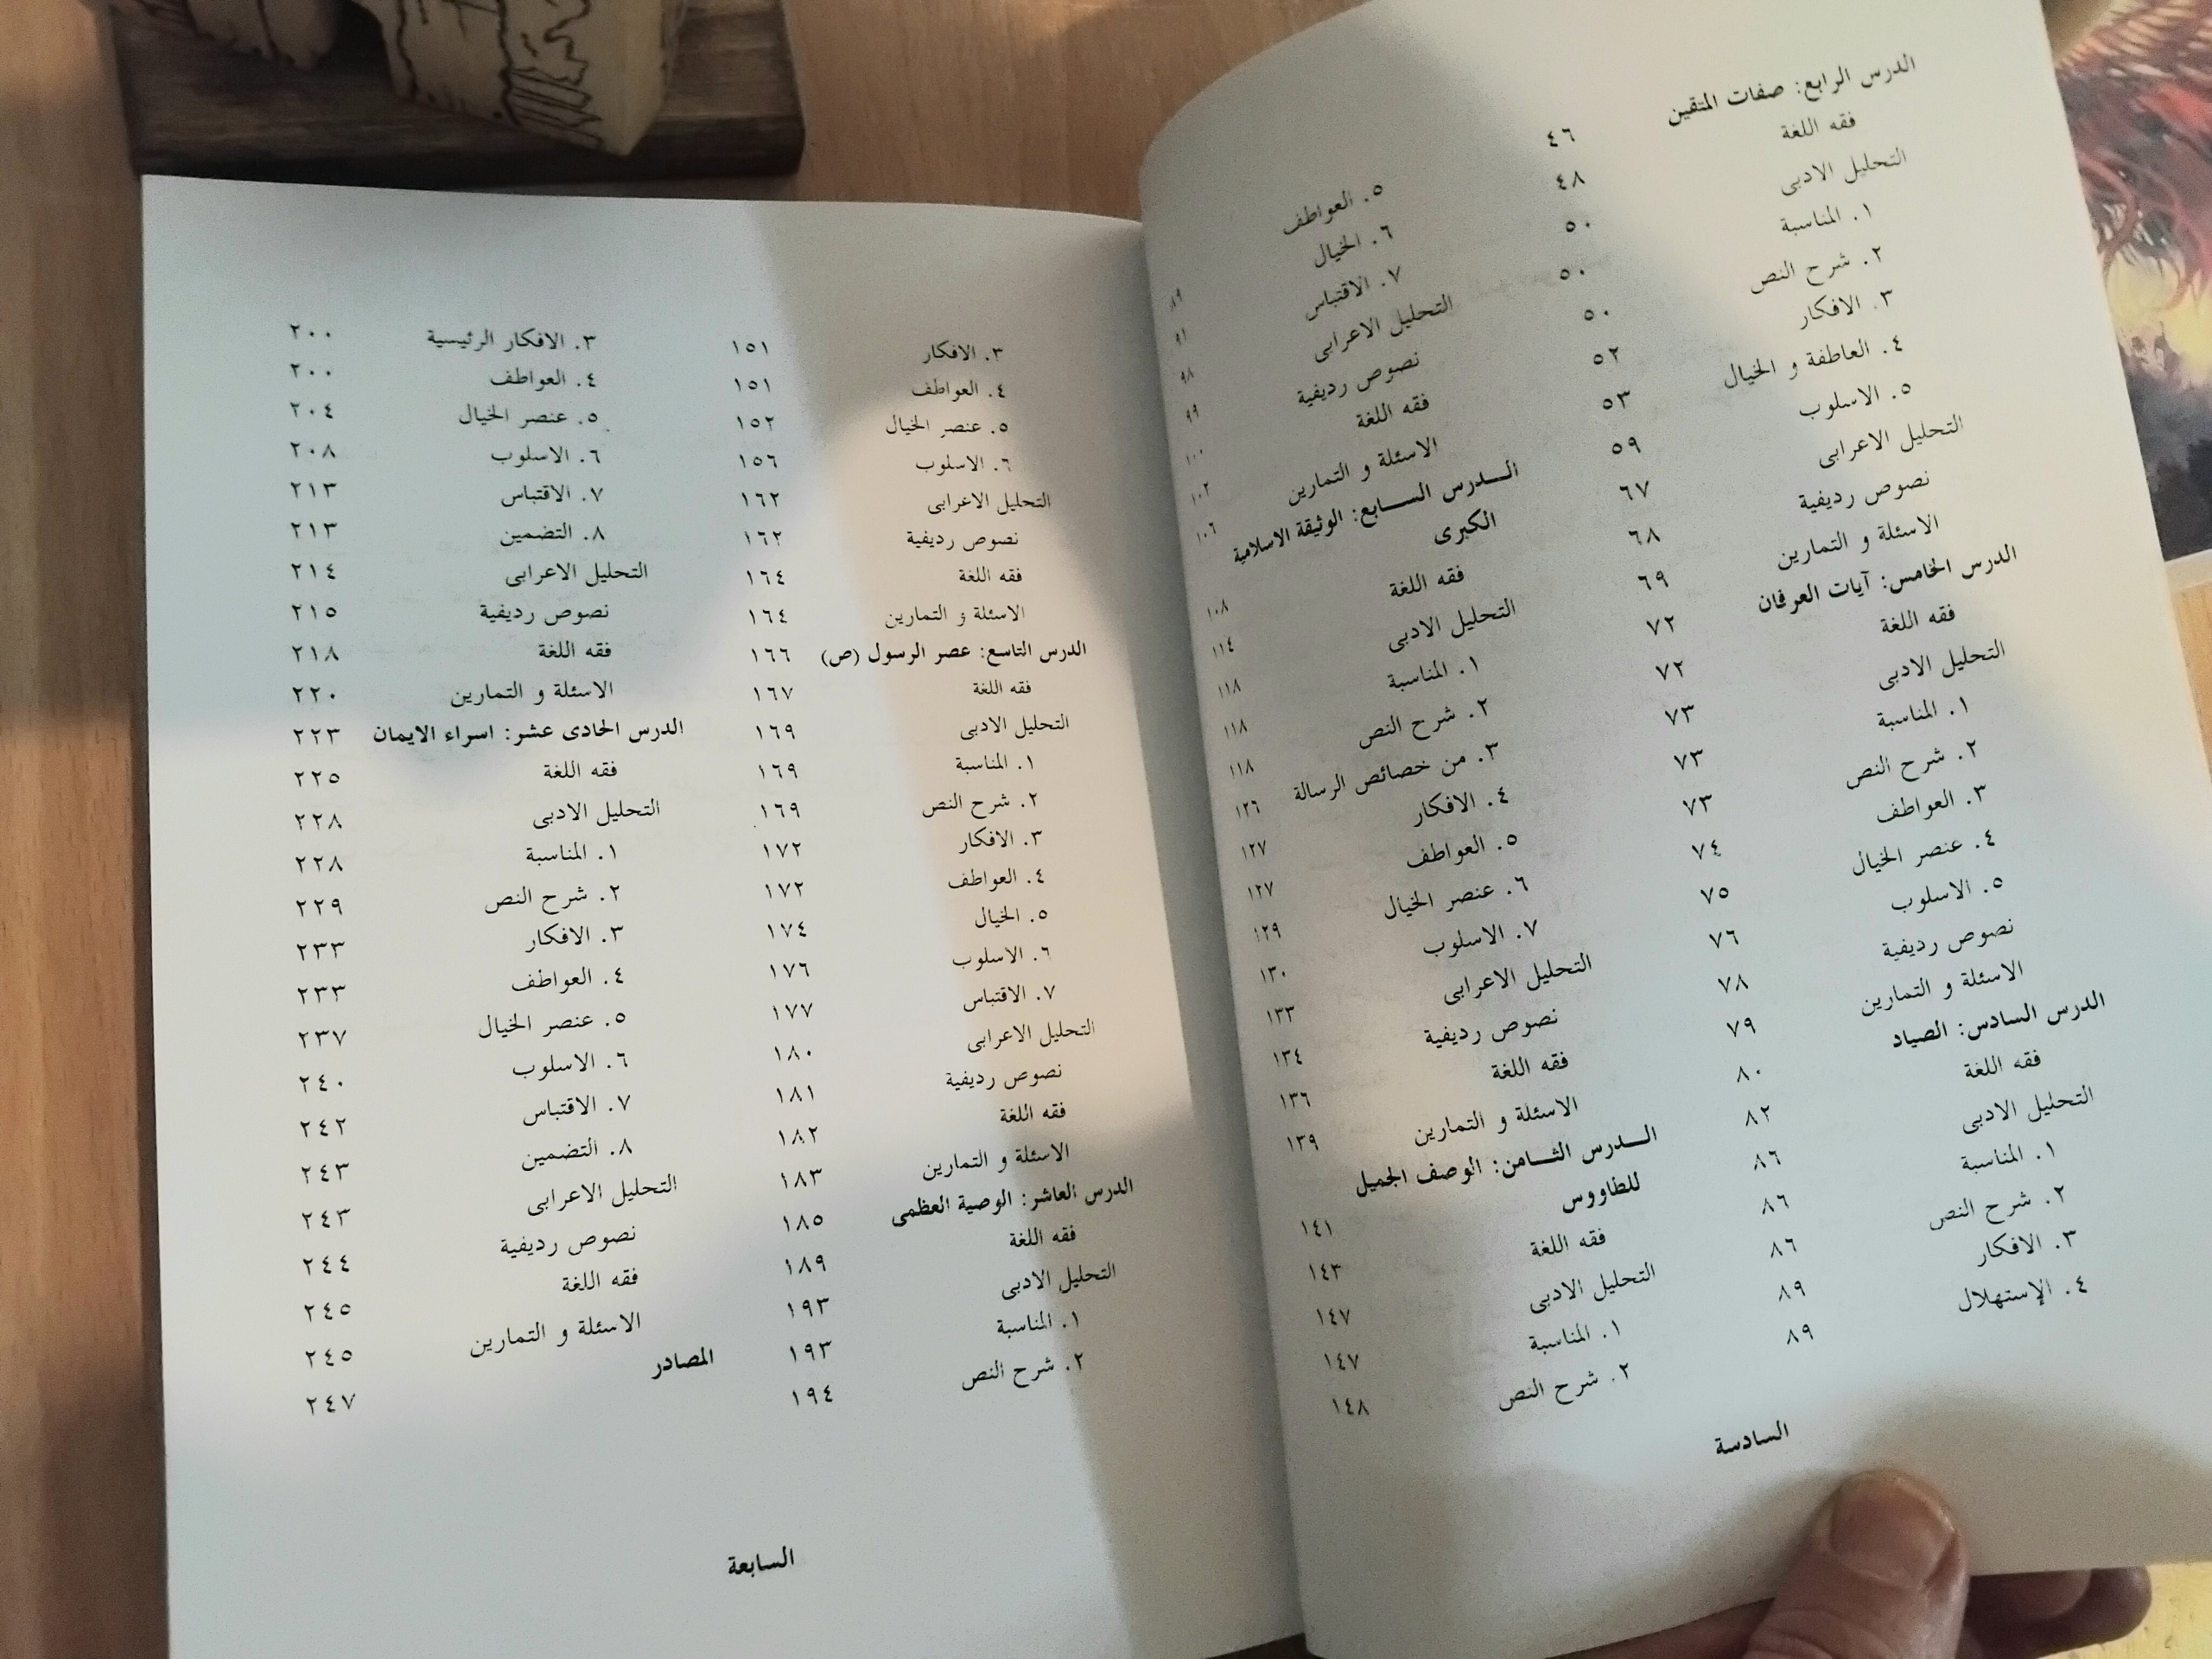 الدرس الرابع: صفات المتقين ٤٦
فقه اللغة ٤٨
التحليل الادبى ٥٠
١. المناسبة ٥٠
٢. شرح النص ٥٠
٣. الافكار ٥٢
٤. العاطفة و الخيال ٥٣
٥. الاسلوب ٥٩
التحليل الاعرابى ٦٧
نصوص رديفية ٦٨
الاسئلة و التمارين ٦٩
الدرس الخامس: آيات العرفان ٧٢
فقه اللغة ٧٢
التحليل الادبى ٧٣
١. المناسبة ٧٣
٢. شرح النص ٧٣
٣. العواطف ٧٤
٤. عنصر الخيال ٧٥
٥. الاسلوب ٧٦
نصوص رديفية ٧٨
الاسئلة و التمارين ٧٩
الدرس السادس: الصياد ٨٠
فقه اللغة ٨٢
التحليل الادبى ٨٦
١. المناسبة ٨٦
٢. شرح النص ٨٦
٣. الافكار ٨٩
٤. الإستهلال ٨٩
٥. العواطف ٨٩
٦. الخيال ٩١
٧. الاقتباس ٩٨
التحليل الاعرابى ٩٩
نصوص رديفية ١٠٠
فقه اللغة ١٠٢
الاسئلة و التمارين ١٠٦
الـدرس السـابع: الوثيقة الاسلامية
الكبرى ١٠٨
فقه اللغة ١١٤
التحليل الادبى ١١٨
١. المناسبة ١١٨
٢. شرح النص ١١٨
٣. من خصائص الرسالة ١٢٦
٤. الافكار ١٢٧
٥. العواطف ١٢٧
٦. عنصر الخيال ١٢٩
٧. الاسلوب ١٣٠
التحليل الاعرابى ١٣٣
نصوص رديفية ١٣٤
فقه اللغة ١٣٦
الاسئلة و التمارين ١٣٩
الـدرس الثـامن: الوصف الجميل
للطاووس ١٤١
فقه اللغة ١٤٣
التحليل الادبى ١٤٧
١. المناسبة ١٤٧
٢. شرح النص ١٤٨
السادسة
٣. الافكار ١٥١
٤. العواطف ١٥١
٥. عنصر الخيال ١٥٢
٦. الاسلوب ١٥٦
التحليل الاعرابى ١٦٢
نصوص رديفية ١٦٢
فقه اللغة ١٦٤
الاسئلة و التمارين ١٦٤
الدرس التاسع: عصر الرسول (ص) ١٦٦
فقه اللغة ١٦٧
التحليل الادبى ١٦٩
١. المناسبة ١٦٩
٢. شرح النص ١٦٩
٣. الافكار ١٧٢
٤. العواطف ١٧٢
٥. الخيال ١٧٤
٦. الاسلوب ١٧٦
٧. الاقتباس ١٧٧
التحليل الاعرابى ١٨٠
نصوص رديفية ١٨١
فقه اللغة ١٨٢
الاسئلة و التمارين ١٨٣
الدرس العاشر: الوصية العظمى ١٨٥
فقه اللغة ١٨٩
التحليل الادبى ١٩٣
١. المناسبة ١٩٣
٢. شرح النص ١٩٤
٣. الافكار الرئيسية ٢٠٠
٤. العواطف ٢٠٠
٥. عنصر الخيال ٢٠٤
٦. الاسلوب ٢٠٨
٧. الاقتباس ٢١٣
٨. التضمين ٢١٣
التحليل الاعرابى ٢١٤
نصوص رديفية ٢١٥
فقه اللغة ٢١٨
الاسئلة و التمارين ٢٢٠
الدرس الحادى عشر: اسراء الايمان ٢٢٣
فقه اللغة ٢٢٥
التحليل الادبى ٢٢٨
١. المناسبة ٢٢٨
٢. شرح النص ٢٢٩
٣. الافكار ٢٣٣
٤. العواطف ٢٣٣
٥. عنصر الخيال ٢٣٧
٦. الاسلوب ٢٤٠
٧. الاقتباس ٢٤٢
٨. التضمين ٢٤٣
التحليل الاعرابى ٢٤٣
نصوص رديفية ٢٤٤
فقه اللغة ٢٤٥
الاسئلة و التمارين ٢٤٥
المصادر ٢٤٧
السابعة